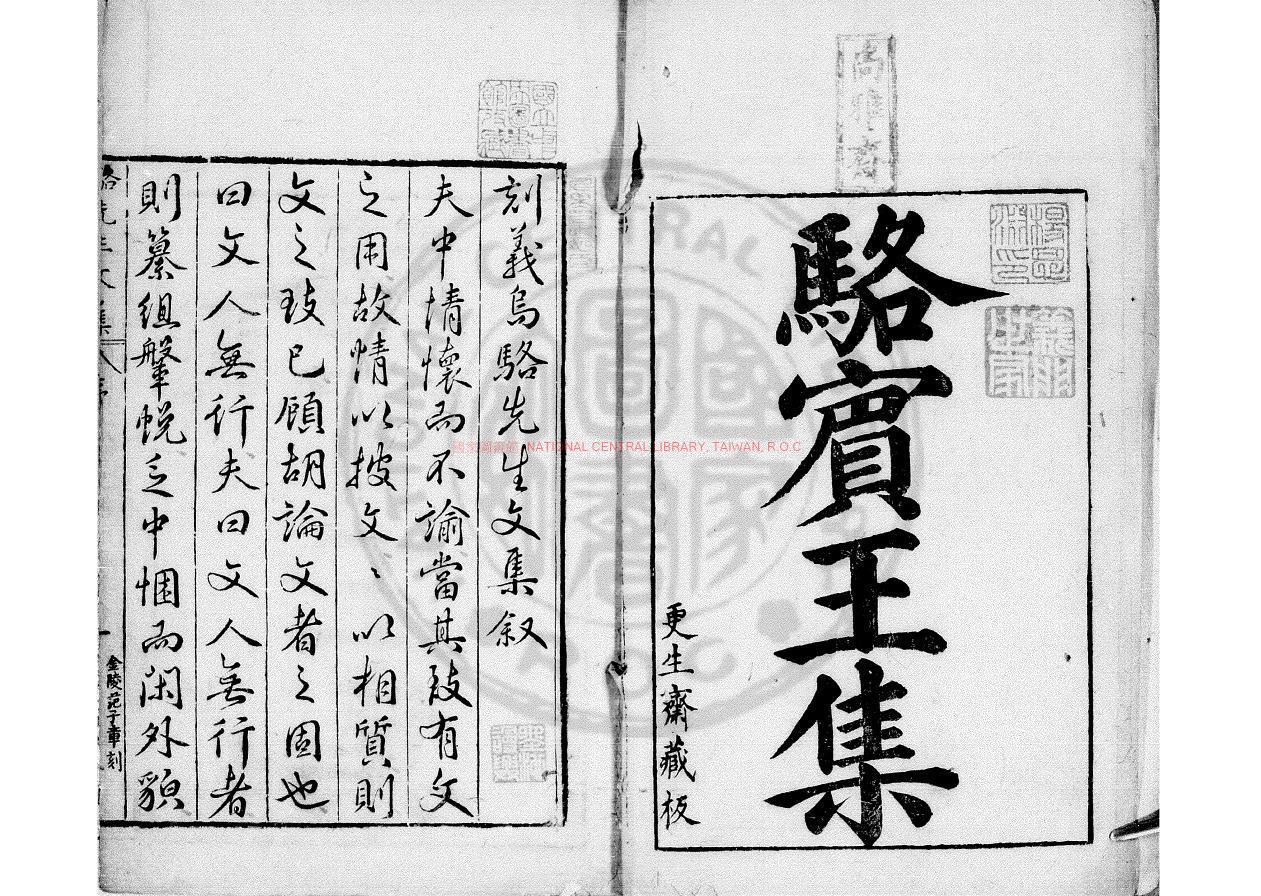 駱賓王集
更生齋藏板
刻義烏駱先生文集叙
夫中情懷而不諭當其發有文
之用故情以披文〻以相質則
文之致已顧胡論文者之固也
曰文人無行夫曰文人無行者
則纂組鞶帨之中悃而閑外貌
駱先生文集 序 一
金陵范子章刻
國家圖書館 NATIONAL CENTRAL LIBRARY, TAIWAN, R.O.C